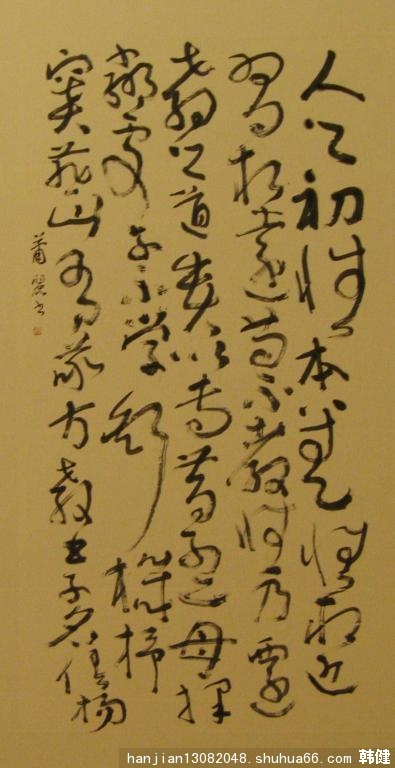 人之初性本善性相近
習相遠苟不教性乃遷
教之道貴以專昔孟母擇
鄰處子不學斷機杼
竇燕山有義方教五子名俱揚
hanjian13082048.shuhua66.com 韩健